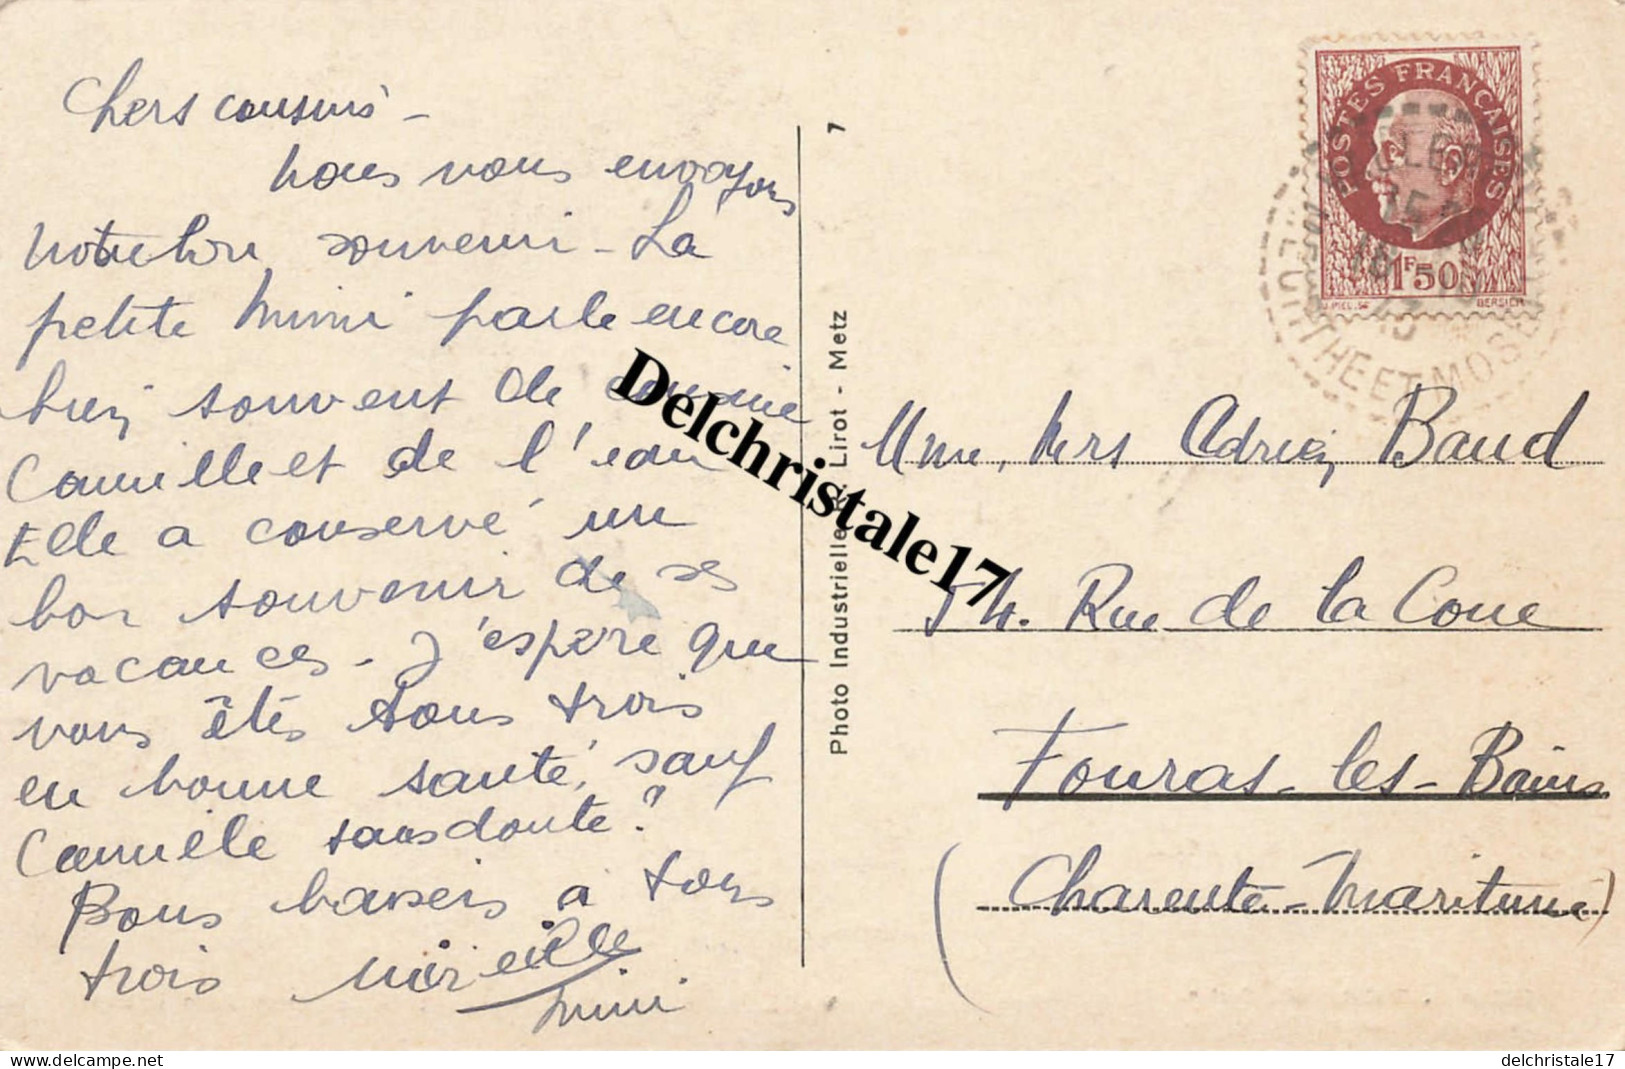 Chers cousins -
nous vous envoyons
notre bon souvenir - La
petite Mimi parle encore
bien souvent de cousine
Camille et de l'eau
Elle a conservé un
bon souvenir de ses
vacances - J'espère que
vous êtes tous trois
en bonne santé, sauf
Camille sans doute ?
Bons baisers à tous
trois Mireille
Mimi
7
Photo Industrielle Lirot - Metz
POSTES FRANÇAISES
1F50
BERSIER
MEURTHE ET MOSELLE
Mme, Mrs Adrien Baud
54. Rue de la Coue
Fouras-les-Bains
(Charente-Maritime)
Delchristale17
https://www.delcampe.net
delchristale17